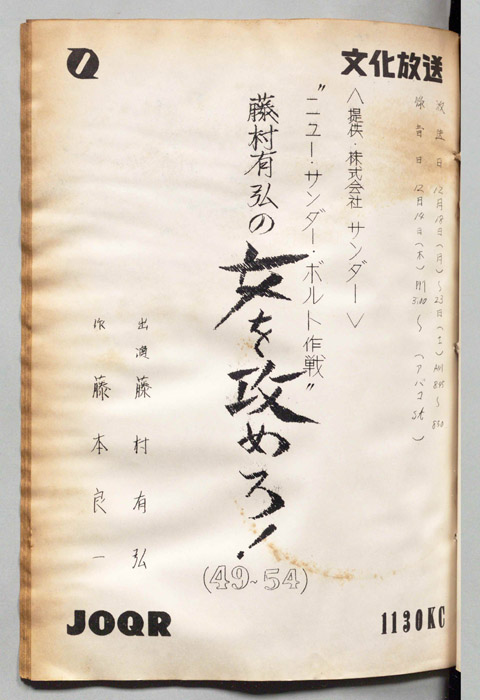 文化放送
放送日 12月18日(月)～23日(土) AM 8:45～8:50
録音日 12月14日(木) PM 3:00～ (アバコ st)
＜提供・株式会社 サンダー＞
"ニュー・サンダー・ボルト作戦"
藤村有弘の 女を攻めろ！
(49~54)
出演 藤村有弘
作 藤本良一
JOQR
1130KC